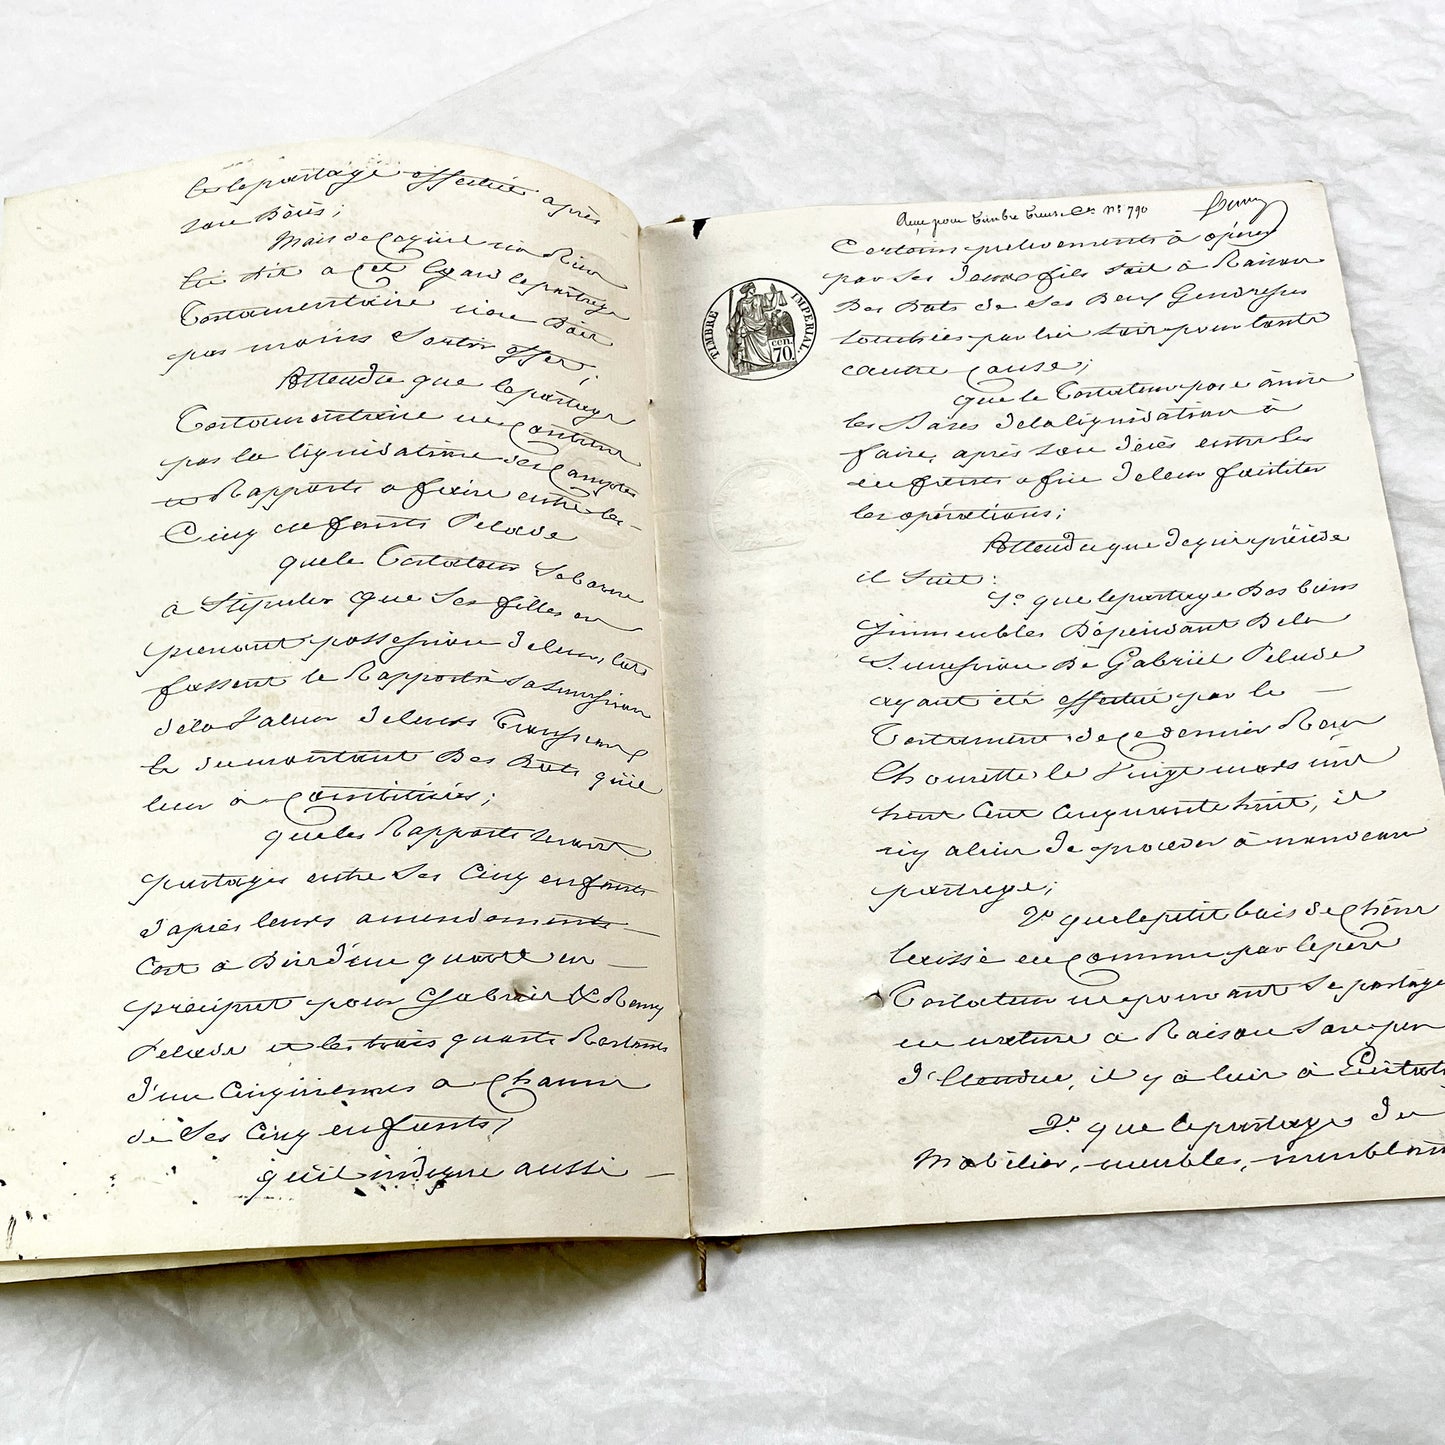 le partage effectué après
son Décès;
Mais de ce qu'il n'a Rien
été dit à cet égard le partage
Testamentaire n'en Doit
pas moins Sortir effet;
Attendu que le partage
Testamentaire ne contient
pas la liquidation des Comptes
et Rapports a faire entre les
Cinq enfants Pelade
que le Testateur Se borne
à Stipuler que Ses filles en
prenant possession de leurs lots
fassent le Rapport à Sa Succession
de la Valeur de leurs Trousseaux
le du montant Des Dots qu'il
leur a Constituées;
que les Rapports seront
partagés entre Ses Cinq enfants
d'après leurs amendements
C'est à Dire d'un quart en
préciput pour Gabriel & Remy
Pelade et les trois quarts Restants
d'un Cinquième a Chacun
de Ses Cinq enfants;
qu'il indique aussi
Reçu pour Timbre N° 790
Certains prélèvements à opérer
par Ses Deux fils Soit à Raison
Des Dots de Ses Deux Gendresses
touchées par lui Soit pour toute
autre Cause;
que le Testateur pose ainsi
les Bases de la liquidation à
faire, après son décès entre Ses
enfants afin de leur faciliter
les opérations;
Attendu que de ce qui précède
il Suit:
1° que le partage Des biens
immeubles Dépendant De la
Succession De Gabriel Pelade
ayant été effectué par le
Testament de ce dernier Reçu
Chourette le Vingt mars mil
huit Cent Cinquante huit, il
n'y a lieu de procéder à nouveau
partage;
2° que le petit bois de Chêne
laissé en Commun par le père
Testateur ne pouvant Se partager
en nature à Raison Son peu
d'Etendue, il y a lieu à Liciter
2° que le partage du
Mobilier, meubles, meublants
TIMBRE IMPERIAL
CEN.
70